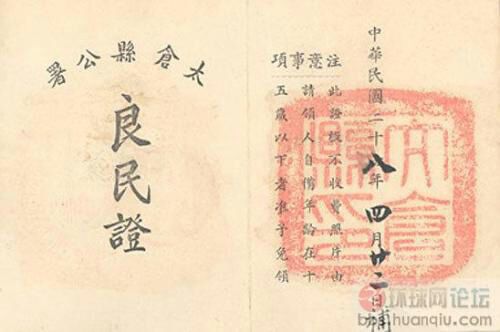 太倉縣公署
良民證
中華民國二十八年四月廿二日補
注意事項
此證概不收費照片由
請領人自備年齡在十
五歲以下者准予免領
太倉
縣印
环球网论坛
bbs.huanqiu.com